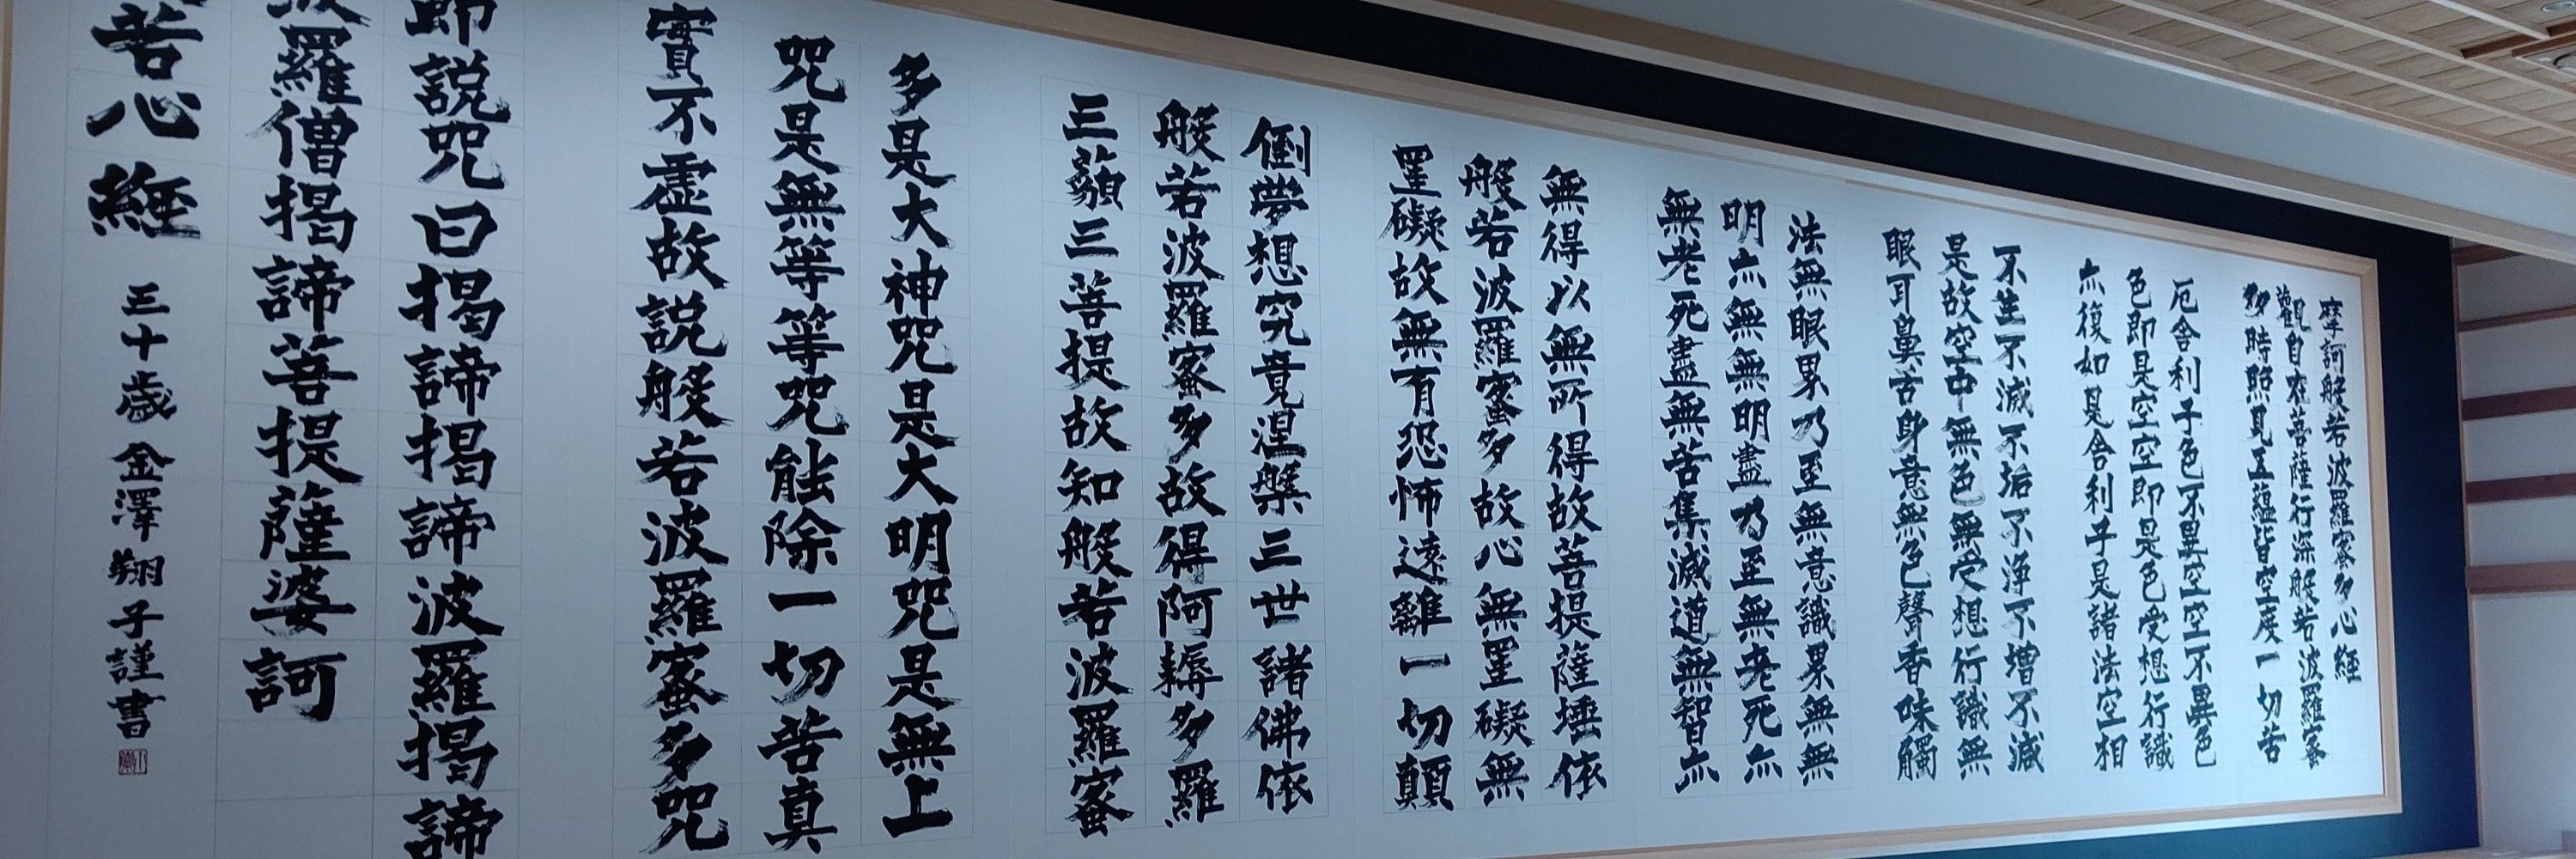 摩訶般若波羅蜜多心経
觀自在菩薩行深般若波羅蜜
多時照見五蘊皆空度一切苦
厄舎利子色不異空空不異色
色即是空空即是色受想行識
亦復如是舎利子是諸法空相
不生不滅不垢不浄不増不減
是故空中無色無受想行識無
眼耳鼻舌身意無色聲香味觸
法無眼界乃至無意識界無無
明亦無無明盡乃至無老死亦
無老死盡無苦集滅道無智亦
無得以無所得故菩提薩埵依
般若波羅蜜多故心無罣礙無
罣礙故無有恐怖遠離一切顛
倒夢想究竟涅槃三世諸佛依
般若波羅蜜多故得阿耨多羅
三藐三菩提故知般若波羅蜜
多是大神咒是大明咒是無上
咒是無等等咒能除一切苦真
實不虚故説般若波羅蜜多咒
即説咒曰揭諦揭諦波羅揭諦
波羅僧揭諦菩提薩婆訶
若心経
三十歳 金澤翔子謹書